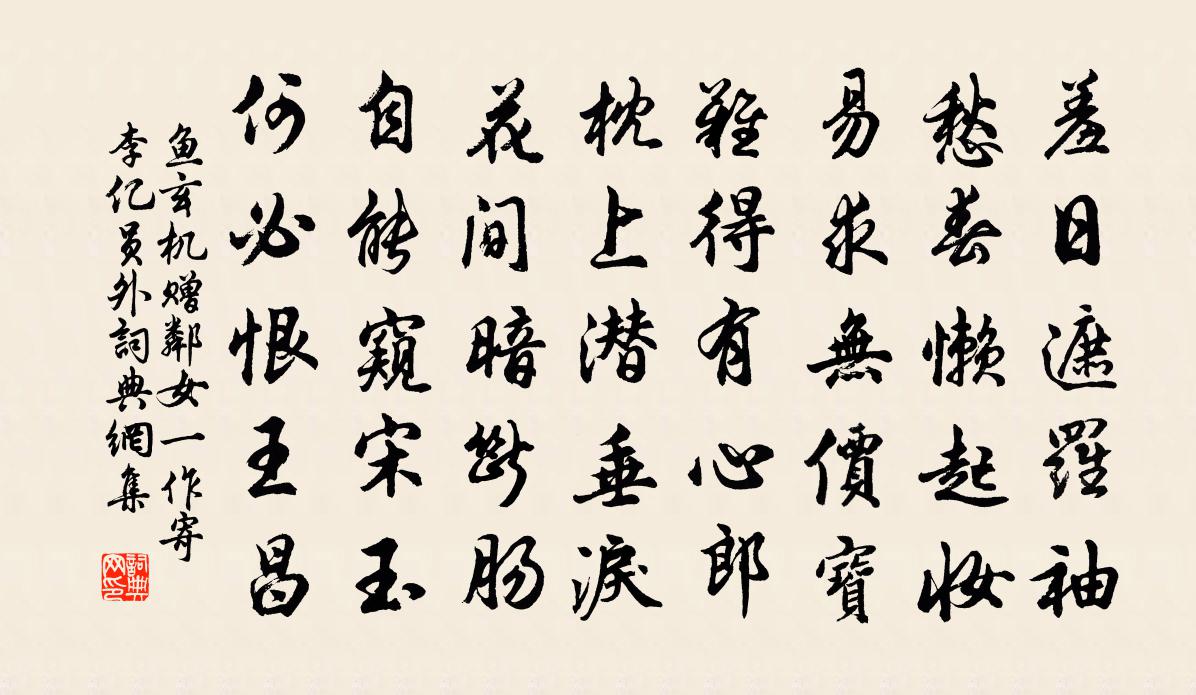 羞日遮羅袖
愁春懶起妝
易求無價寶
難得有心郎
枕上潜垂淚
花間暗斷腸
自能窺宋玉
何必恨王昌
鱼玄机赠鄰女一作寄
李亿员外詞典網集
詞典网印